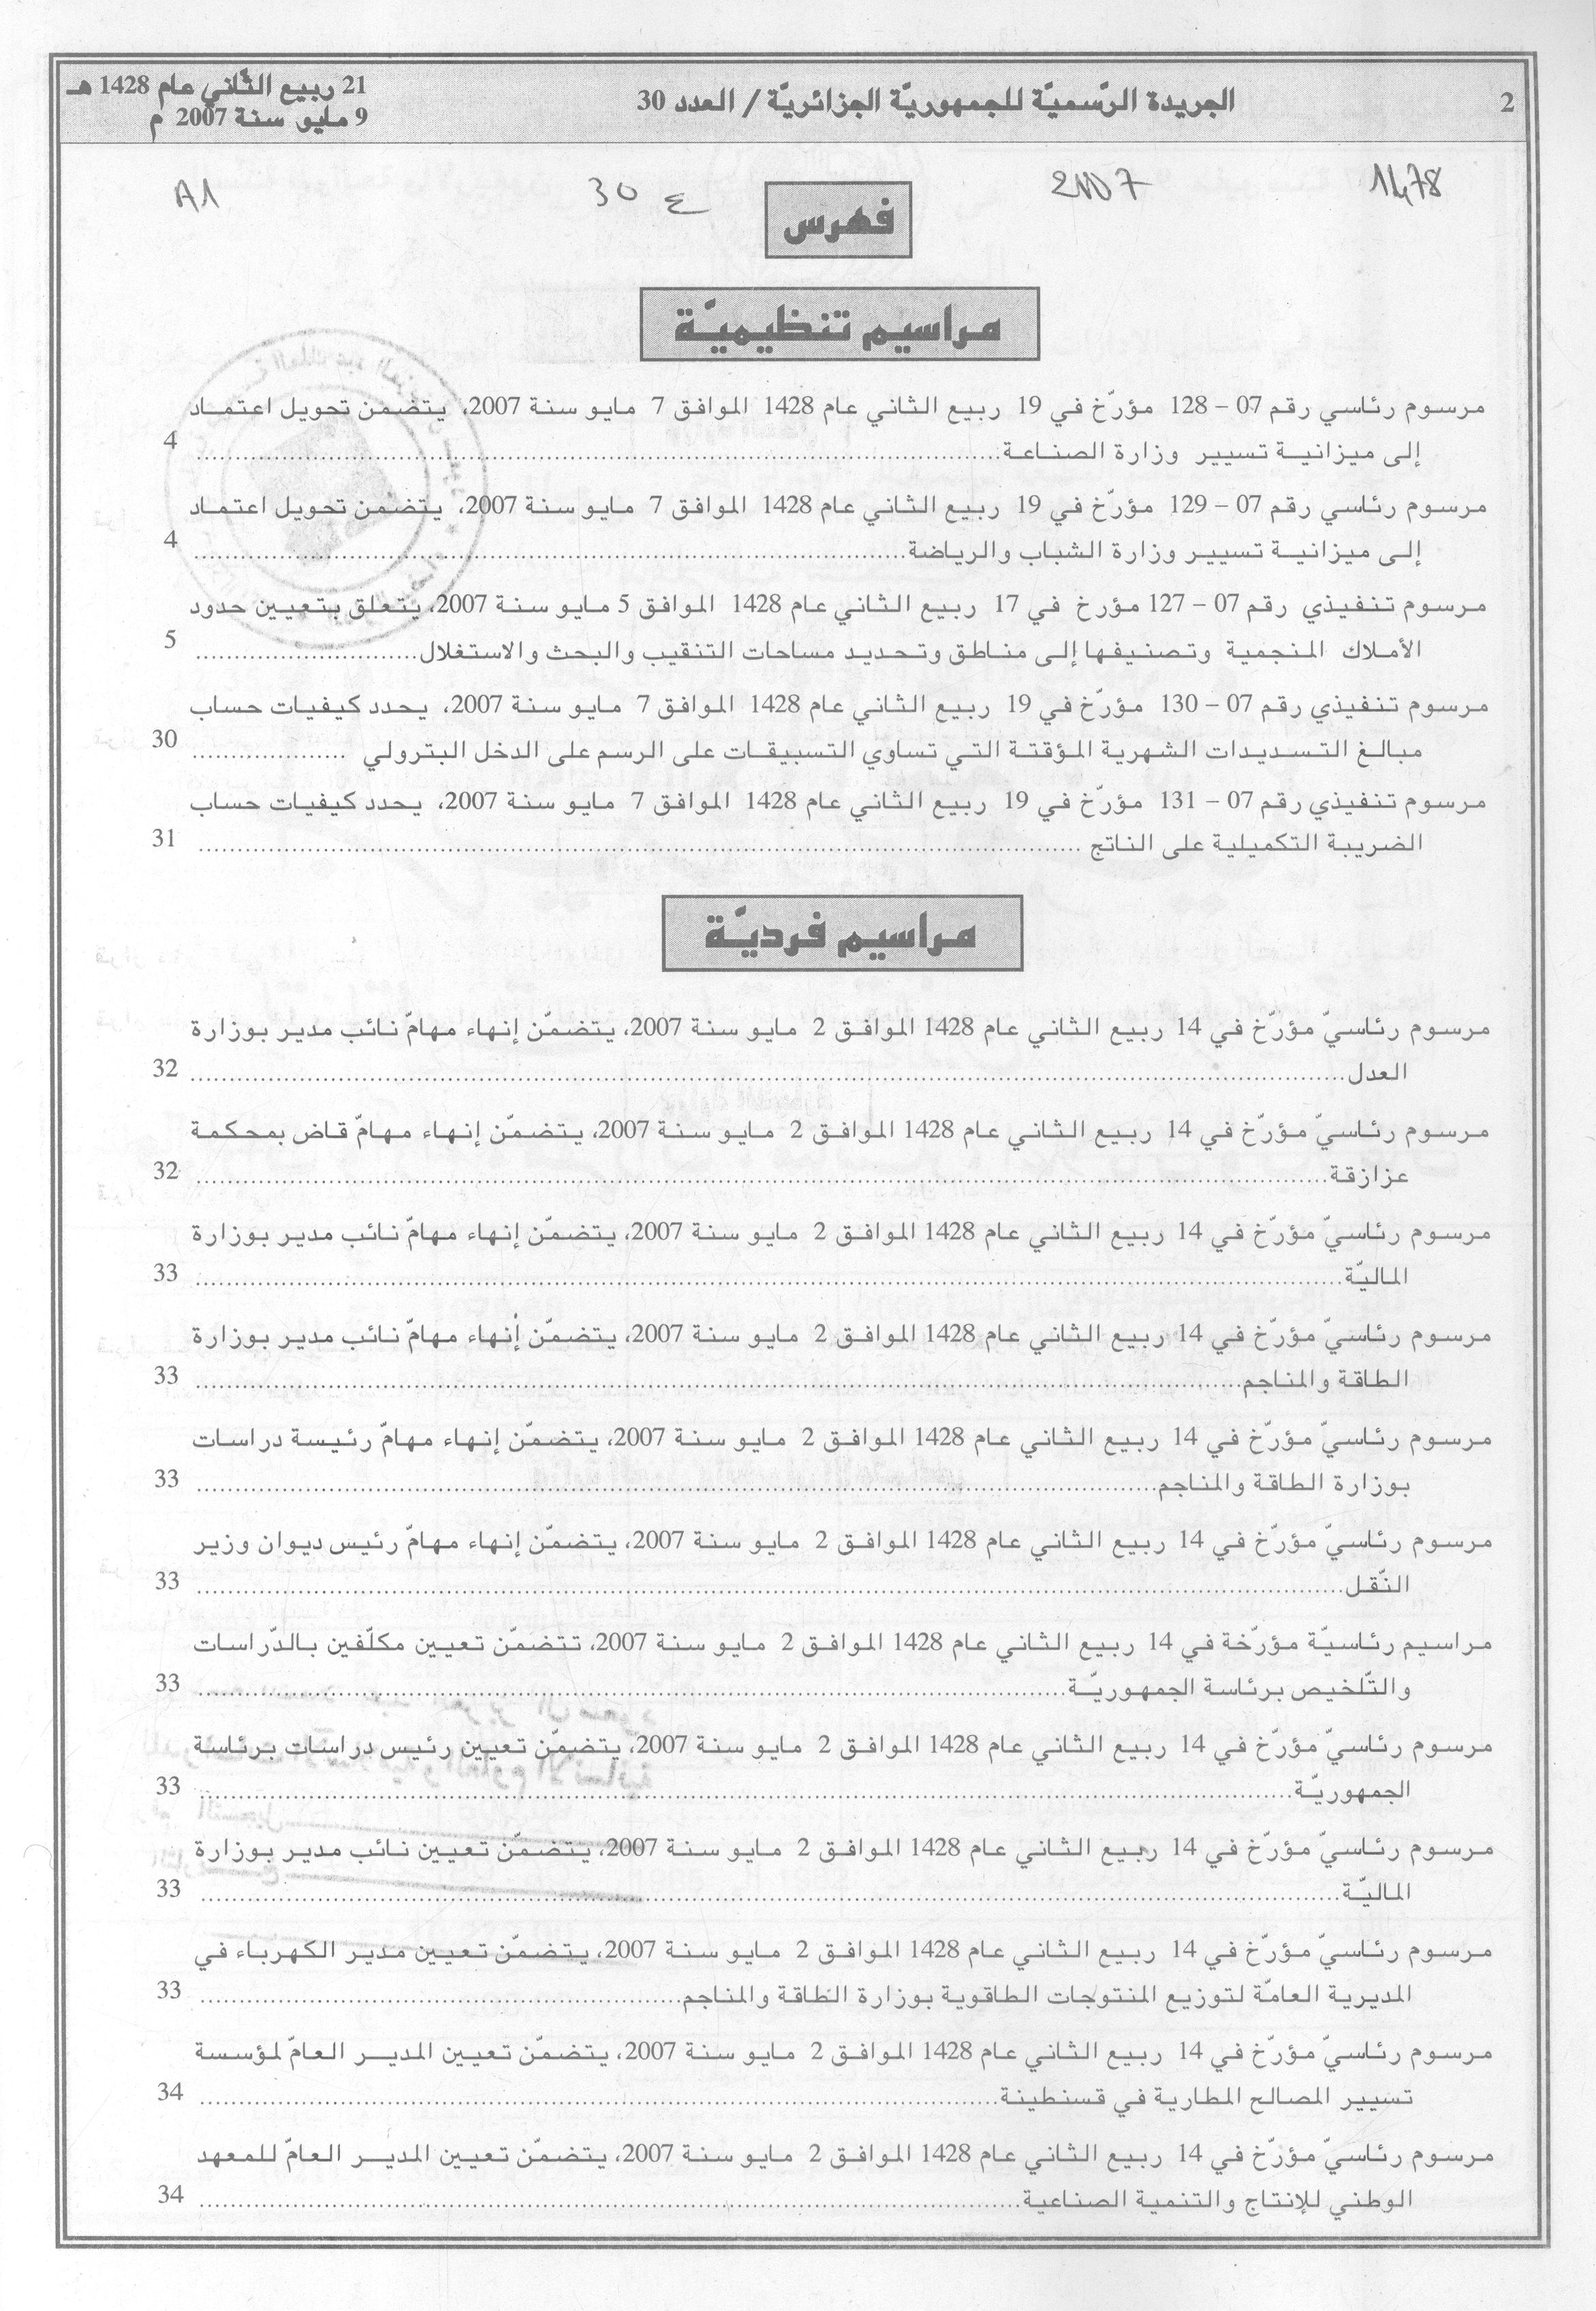 2
الجريدة الرّسميّة للجمهوريّة الجزائريّة / العدد 30
21 ربيع الثّاني عام 1428 هـ
9 مايو سنة 2007 م
1478
2007
ع 30
A1
فهرس
مراسيم تنظيميّة
مرسوم رئاسي رقم 07 – 128 مؤرّخ في 19 ربيع الثاني عام 1428 الموافق 7 مايو سنة 2007، يتضمن تحويل اعتماد
إلى ميزانية تسيير وزارة الصناعة.................... 4
مرسوم رئاسي رقم 07 – 129 مؤرّخ في 19 ربيع الثاني عام 1428 الموافق 7 مايو سنة 2007، يتضمن تحويل اعتماد
إلى ميزانية تسيير وزارة الشباب والرياضة.................... 4
مرسوم تنفيذي رقم 07 – 127 مؤرخ في 17 ربيع الثاني عام 1428 الموافق 5 مايو سنة 2007، يتعلق بتعيين حدود
الأملاك المنجمية وتصنيفها إلى مناطق وتحديد مساحات التنقيب والبحث والاستغلال.................... 5
مرسوم تنفيذي رقم 07 – 130 مؤرّخ في 19 ربيع الثاني عام 1428 الموافق 7 مايو سنة 2007، يحدد كيفيات حساب
مبالغ التسديدات الشهرية المؤقتة التي تساوي التسبيقات على الرسم على الدخل البترولي .................... 30
مرسوم تنفيذي رقم 07 – 131 مؤرّخ في 19 ربيع الثاني عام 1428 الموافق 7 مايو سنة 2007، يحدد كيفيات حساب
الضريبة التكميلية على الناتج .................... 31
مراسيم فرديّة
مرسوم رئاسيّ مؤرّخ في 14 ربيع الثاني عام 1428 الموافق 2 مايو سنة 2007، يتضمّن إنهاء مهامّ نائب مدير بوزارة
العدل.................... 32
مرسوم رئاسيّ مؤرّخ في 14 ربيع الثاني عام 1428 الموافق 2 مايو سنة 2007، يتضمّن إنهاء مهامّ قاض بمحكمة
عزازقة.................... 32
مرسوم رئاسيّ مؤرّخ في 14 ربيع الثاني عام 1428 الموافق 2 مايو سنة 2007، يتضمّن إنهاء مهامّ نائب مدير بوزارة
الماليّة.................... 33
مرسوم رئاسيّ مؤرّخ في 14 ربيع الثاني عام 1428 الموافق 2 مايو سنة 2007، يتضمّن إنهاء مهامّ نائب مدير بوزارة
الطاقة والمناجم.................... 33
مرسوم رئاسيّ مؤرّخ في 14 ربيع الثاني عام 1428 الموافق 2 مايو سنة 2007، يتضمّن إنهاء مهامّ رئيسة دراسات
بوزارة الطاقة والمناجم.................... 33
مرسوم رئاسيّ مؤرّخ في 14 ربيع الثاني عام 1428 الموافق 2 مايو سنة 2007، يتضمّن إنهاء مهامّ رئيس ديوان وزير
النّقل.................... 33
مراسيم رئاسيّة مؤرّخة في 14 ربيع الثاني عام 1428 الموافق 2 مايو سنة 2007، تتضمّن تعيين مكلّفين بالدّراسات
والتّلخيص برئاسة الجمهوريّة.................... 33
مرسوم رئاسيّ مؤرّخ في 14 ربيع الثاني عام 1428 الموافق 2 مايو سنة 2007، يتضمّن تعيين رئيس دراسات برئاسة
الجمهوريّة.................... 33
مرسوم رئاسيّ مؤرّخ في 14 ربيع الثاني عام 1428 الموافق 2 مايو سنة 2007، يتضمّن تعيين نائب مدير بوزارة
الماليّة.................... 33
مرسوم رئاسيّ مؤرّخ في 14 ربيع الثاني عام 1428 الموافق 2 مايو سنة 2007، يتضمّن تعيين مدير الكهرباء في
المديرية العامّة لتوزيع المنتوجات الطاقوية بوزارة الطاقة والمناجم.................... 33
مرسوم رئاسيّ مؤرّخ في 14 ربيع الثاني عام 1428 الموافق 2 مايو سنة 2007، يتضمّن تعيين المدير العامّ لمؤسسة
تسيير المصالح المطارية في قسنطينة.................... 34
مرسوم رئاسيّ مؤرّخ في 14 ربيع الثاني عام 1428 الموافق 2 مايو سنة 2007، يتضمّن تعيين المدير العامّ للمعهد
الوطني للإنتاج والتنمية الصناعية.................... 34